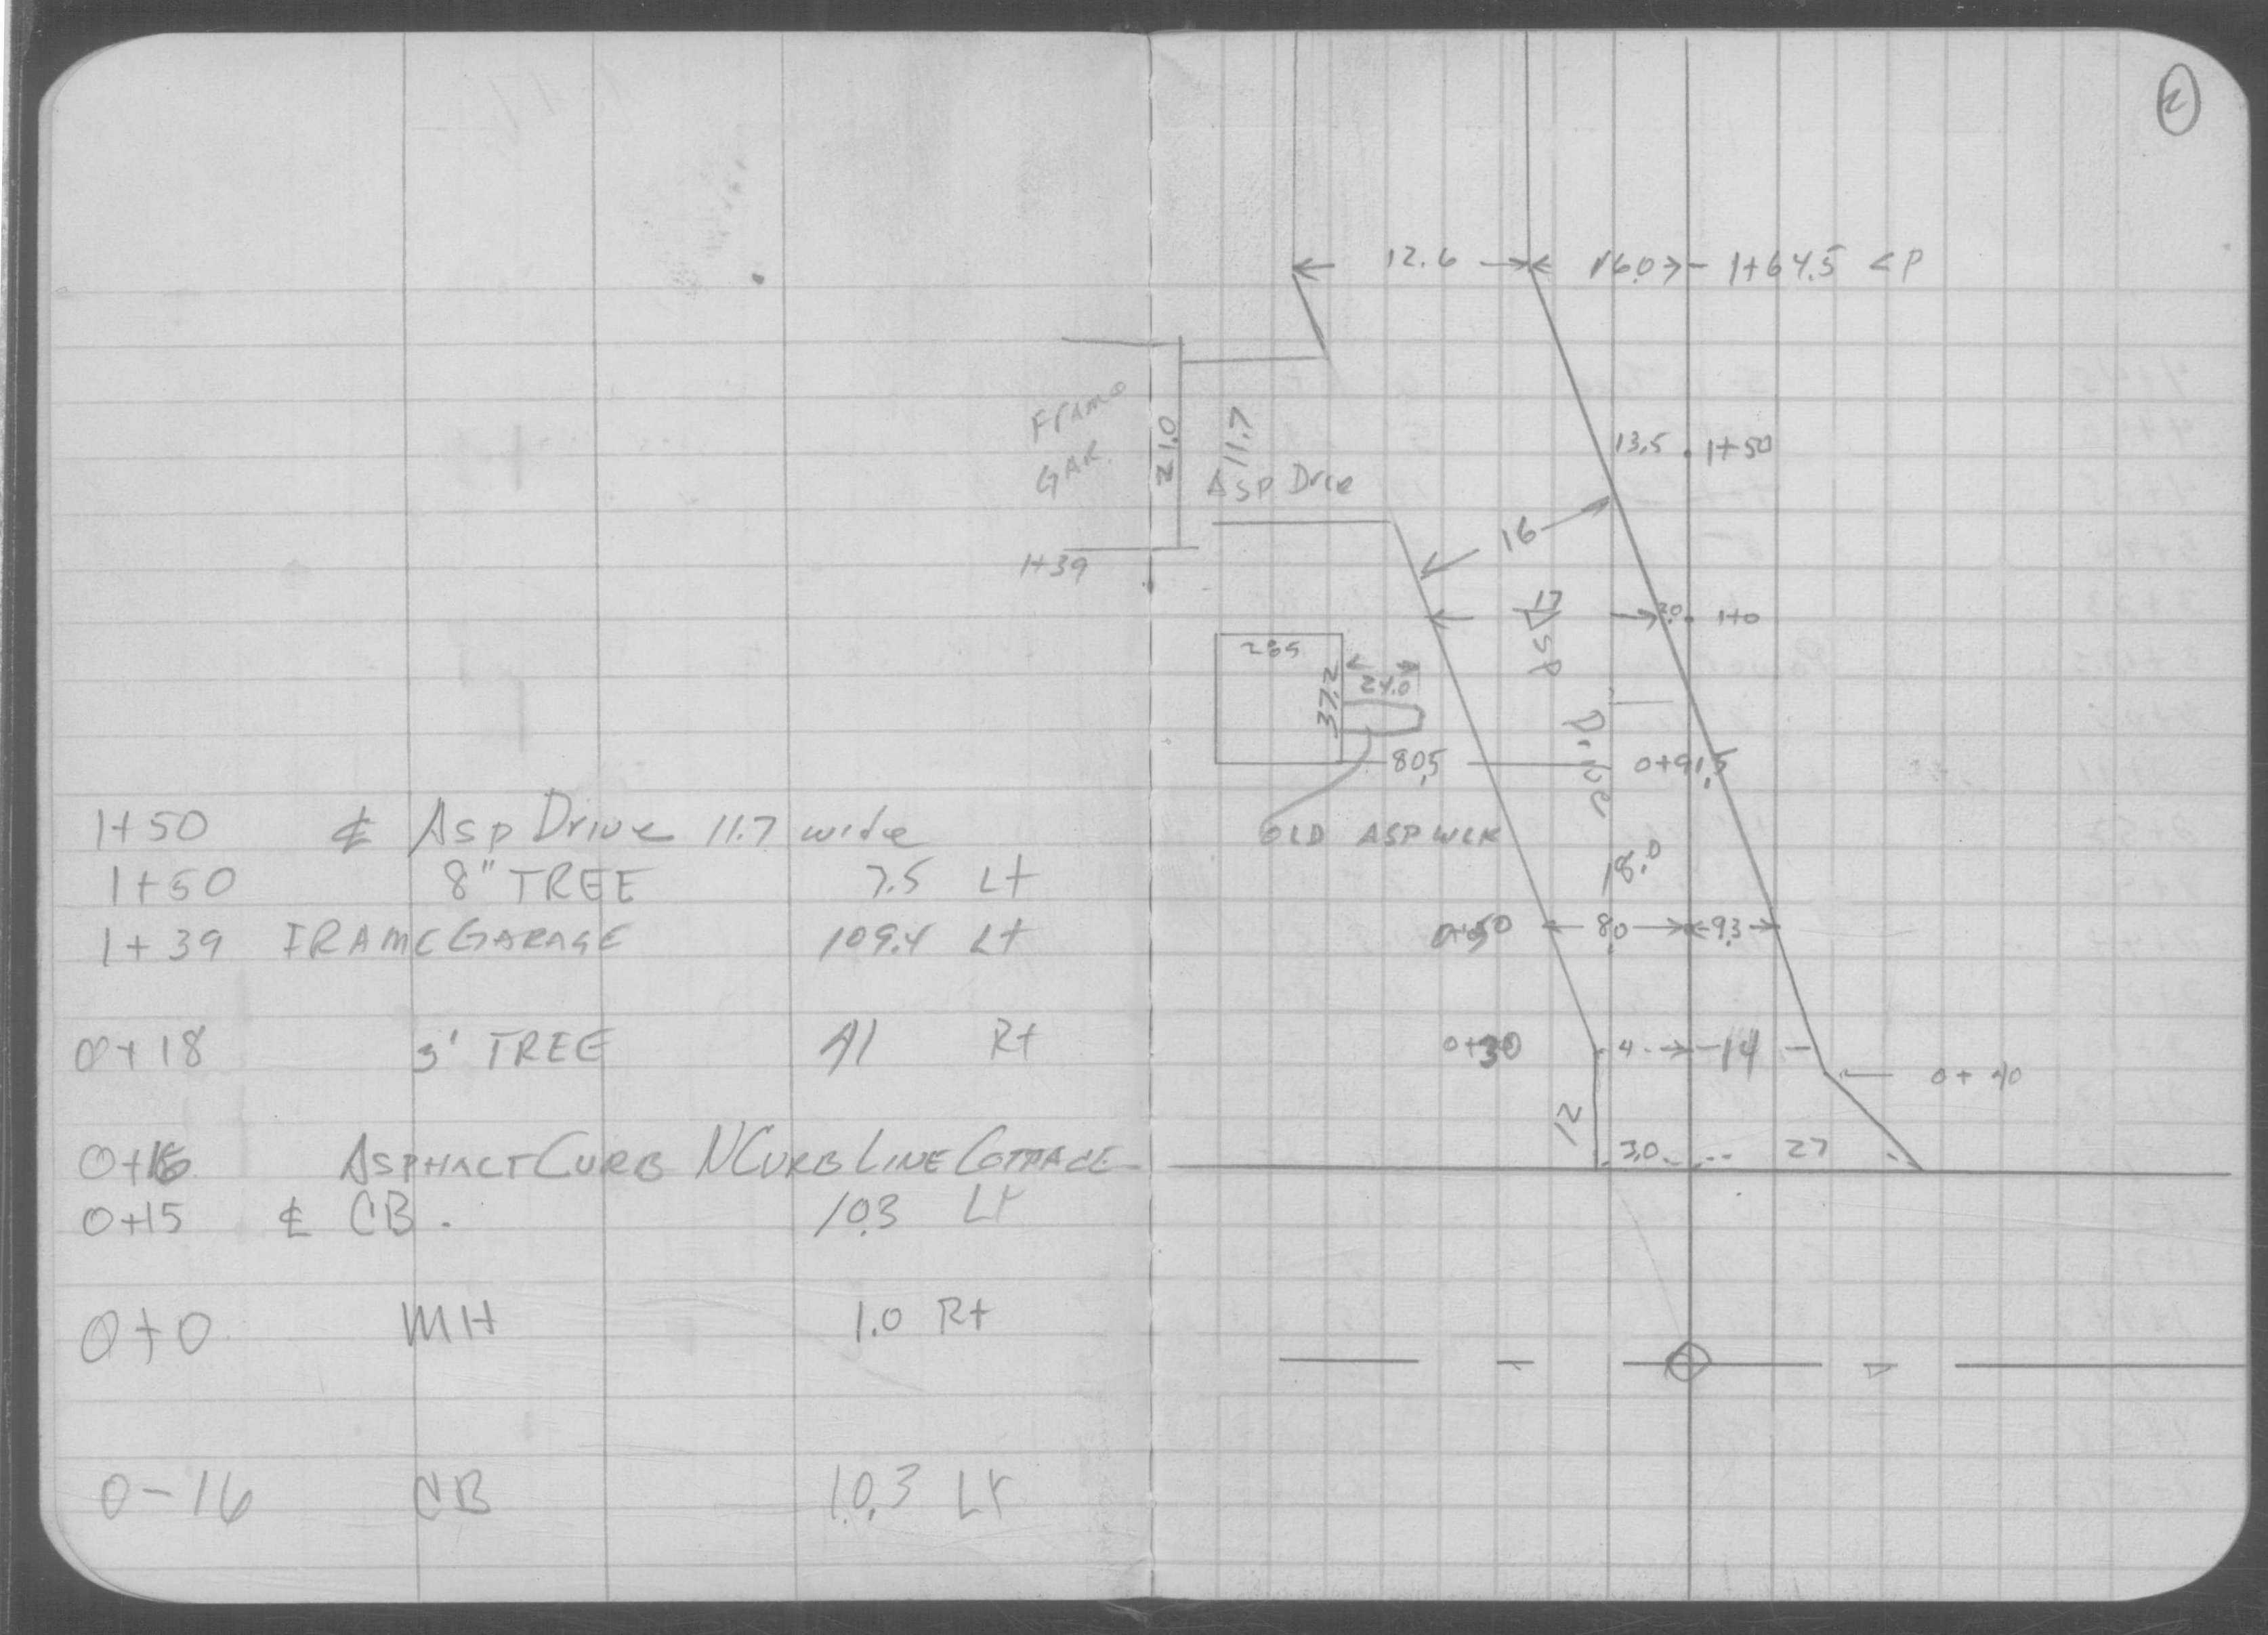 1+50 ℄ Asp Drive 11.7 wide
1+50 8" TREE 7.5 Lt
1+39 FRAME GARAGE 109.4 Lt
0+18 3' TREE 41 Rt
0+16 ASPHALT CURB N CURB LINE COTTAGE
0+15 ℄ CB. 10.3 Lt
0+0 MH 1.0 Rt
0-16 CB 10.3 Lt
2
12.6 16.0 1+64.5 <P
FRAME
GAR.
21.0
11.7
Asp Drive
1+39
13.5 1+50
16
17
3.0 1+0
Asp
Drive
37.2
24.0
80.5
0+91.5
OLD ASP WLK
18.0
0+50 8.0 9.3
0+30 4 14
12
3.0 27